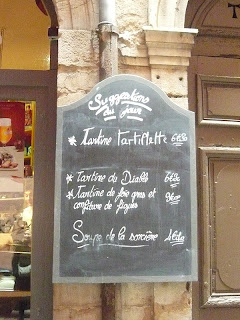 Suggestions
du
jour
* Tartine Tartiflette
* Tartine du Diable
* Tartine de foie gras et
confiture de figues
Soupe de la sorcière